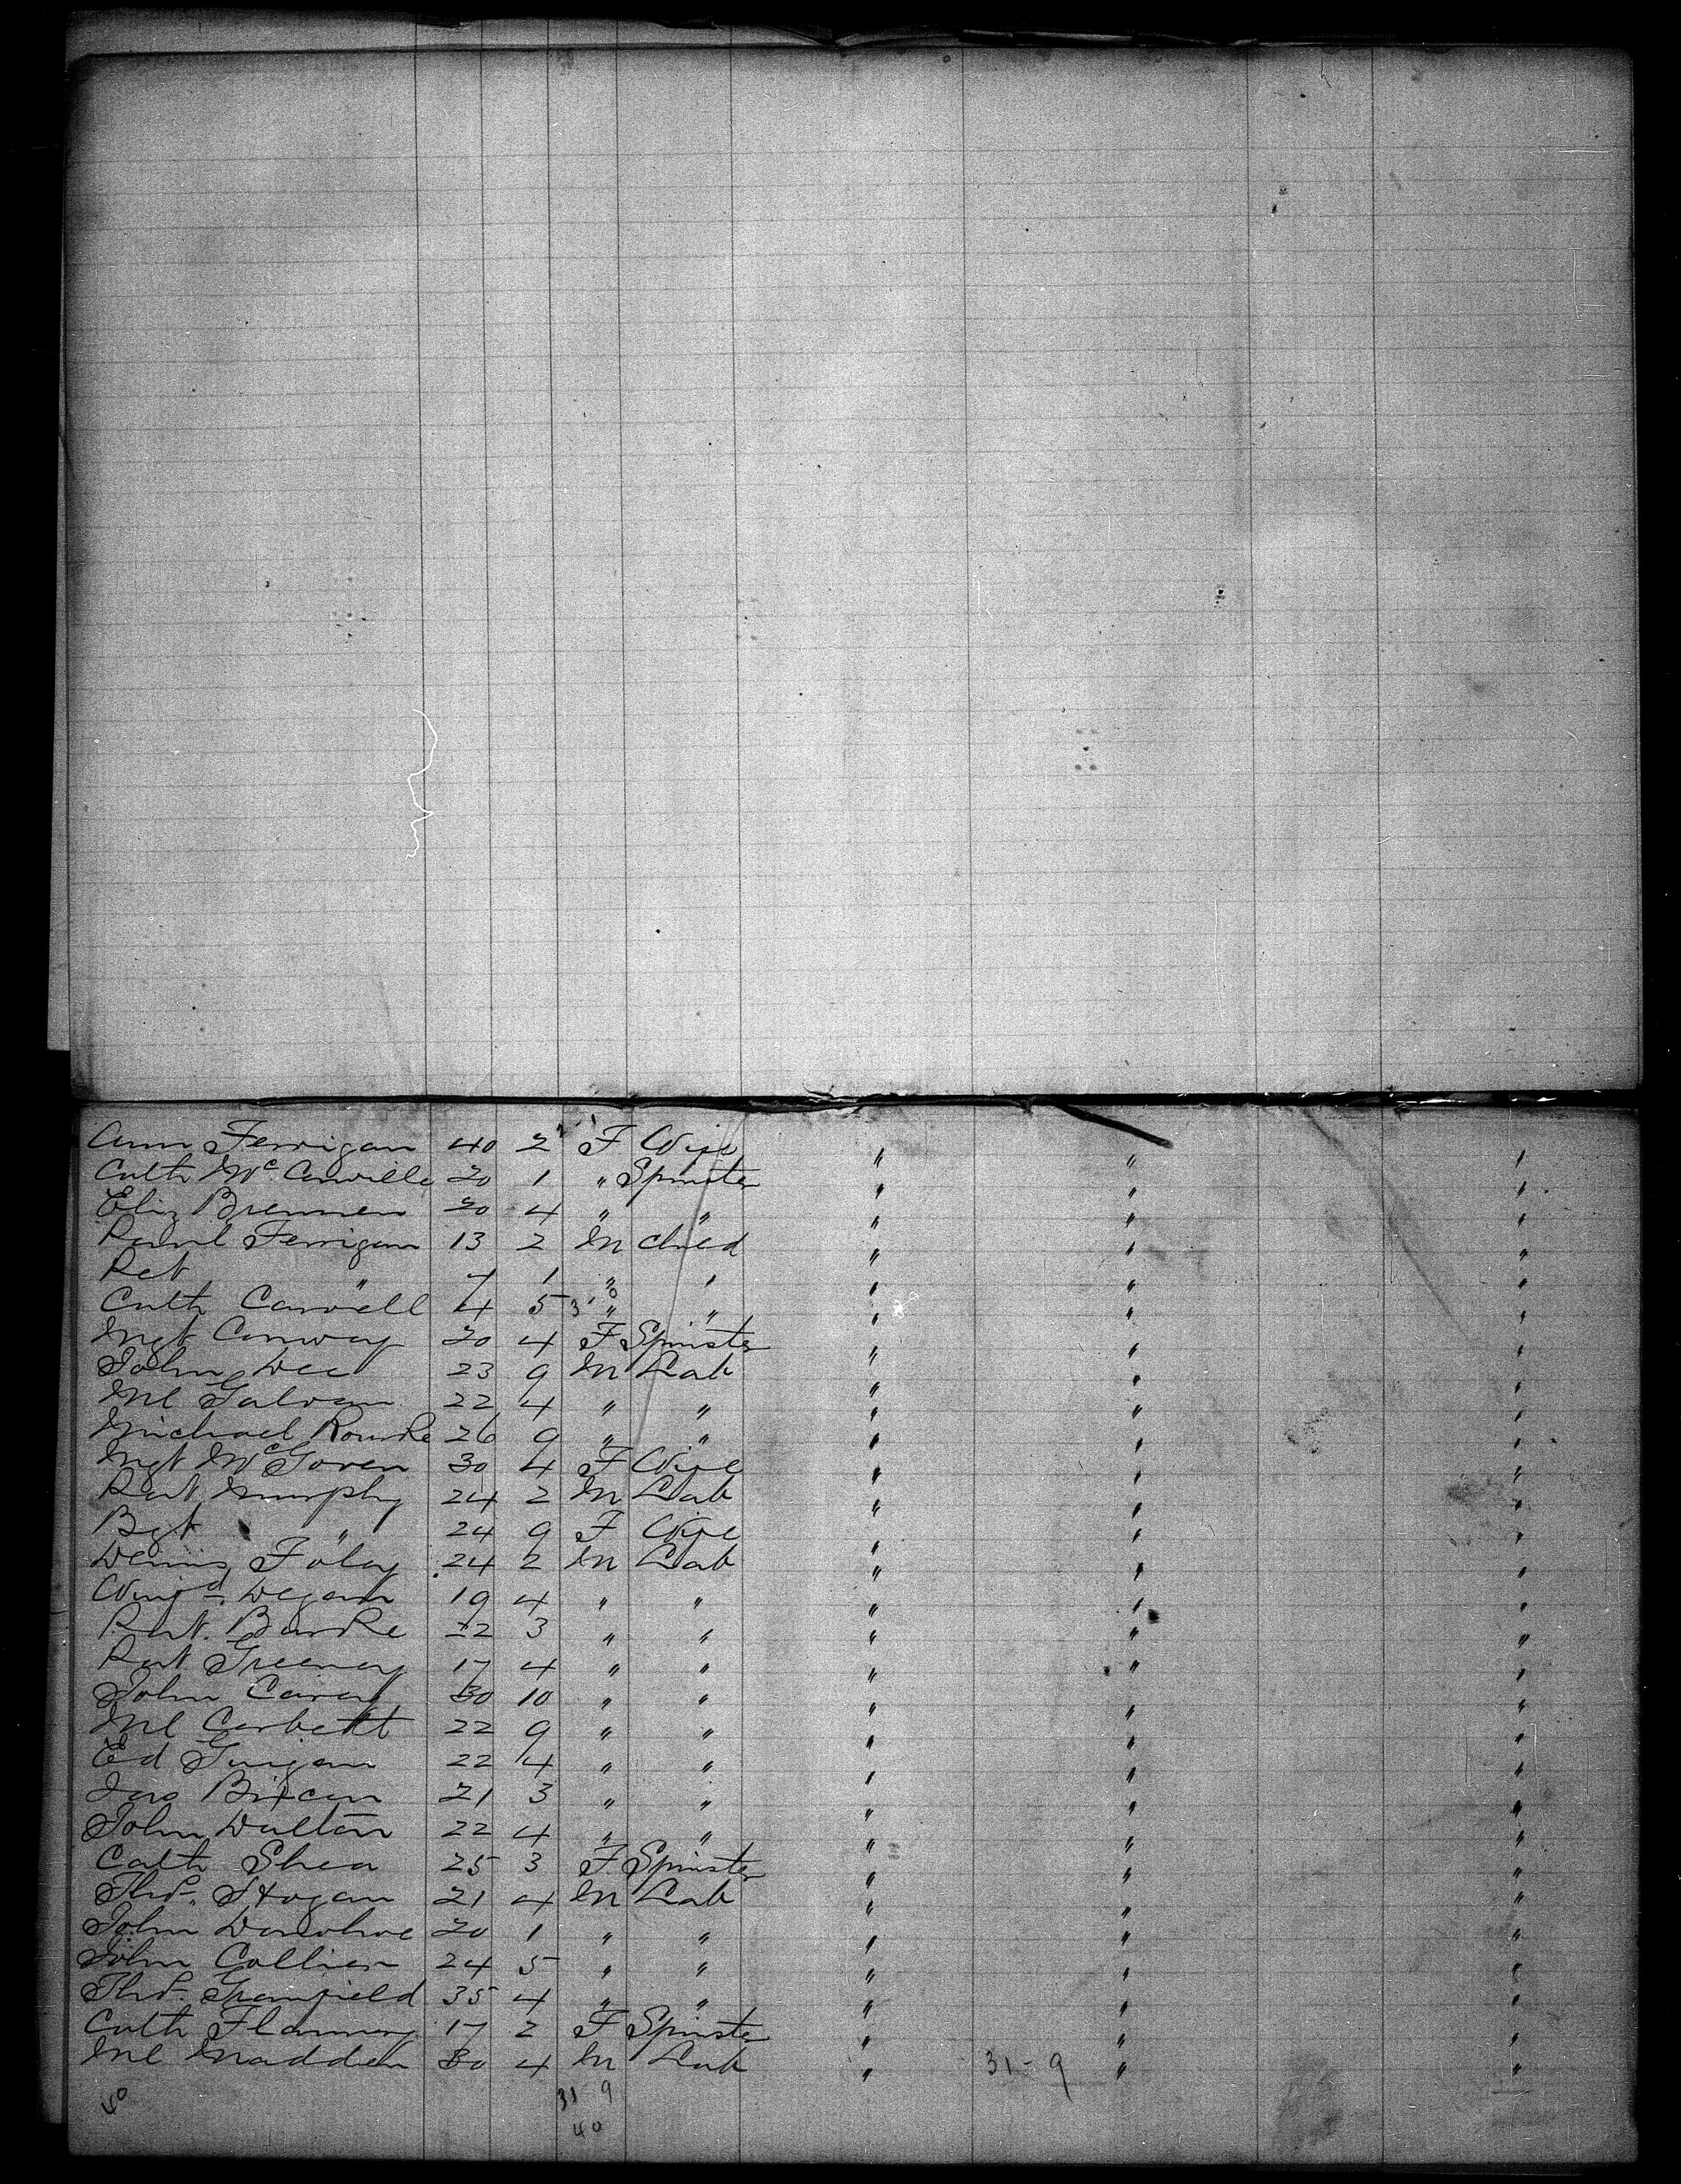 Ann Ferrigan 40 2 F Wife " " "
Cath McConville 20 1 " Spinster " " "
Eliz Brennen 20 4 " " " " "
Ferrigan 13 2 M Child " " "
" 7 1 " " " " "
Cath Carvell 4 5 3 0 " " " " "
Mgt Conway 20 4 F Spinster " " "
John Dee 23 9 M Lab " " "
Ml Galvan 22 4 " " " " "
Michael Rourke 26 9 " " " " "
Mgt McGoven 30 4 F Wife " " "
Pat Murphy 24 2 M Lab " " "
Bgt " 24 9 F Wife " " "
Dennis Foley 24 2 M Lab " " "
Degan 19 4 " " " " "
Pat. Burke 22 3 " " " " "
Pat Greeney 17 4 " " " " "
John Carey 30 10 " " " " "
Ml Corbett 22 9 " " " " "
Ed 22 4 " " " " "
Jas 21 3 " " " " "
John Dalton 22 4 " " " " "
Cath Shea 25 3 F Spinster " " "
Thos. Hogan 21 4 M Lab " " "
John Donohoe 20 1 " " " " "
John Collier 24 5 " " " " "
Thos. Granfield 35 4 " " " " "
Cath Flannery 17 2 F Spinster " " "
Ml Madden 30 4 M Lab " 31-9 " "
40 31 9
40